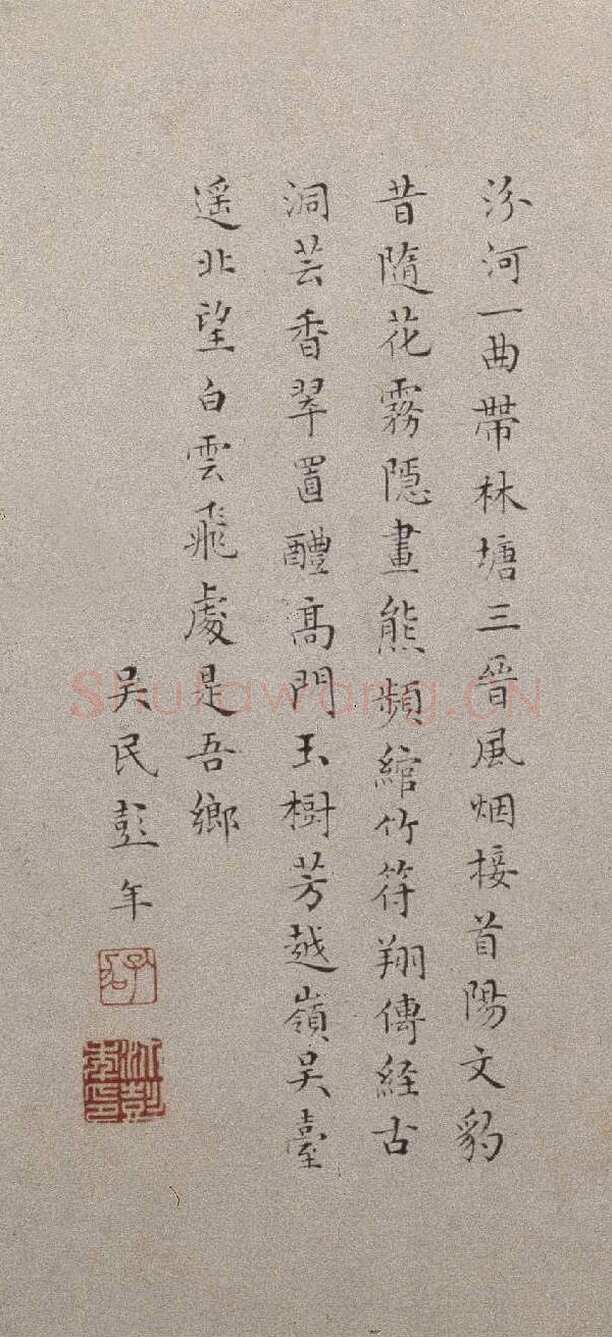 汾河一曲帶林塘三晉風烟接首陽文豹
昔隨花霧隱畫熊頻綰竹符翔傳経古
洞芸香翠置醴高門玉樹芳越嶺吳臺
遥北望白雲飛處是吾鄉
吴民彭年